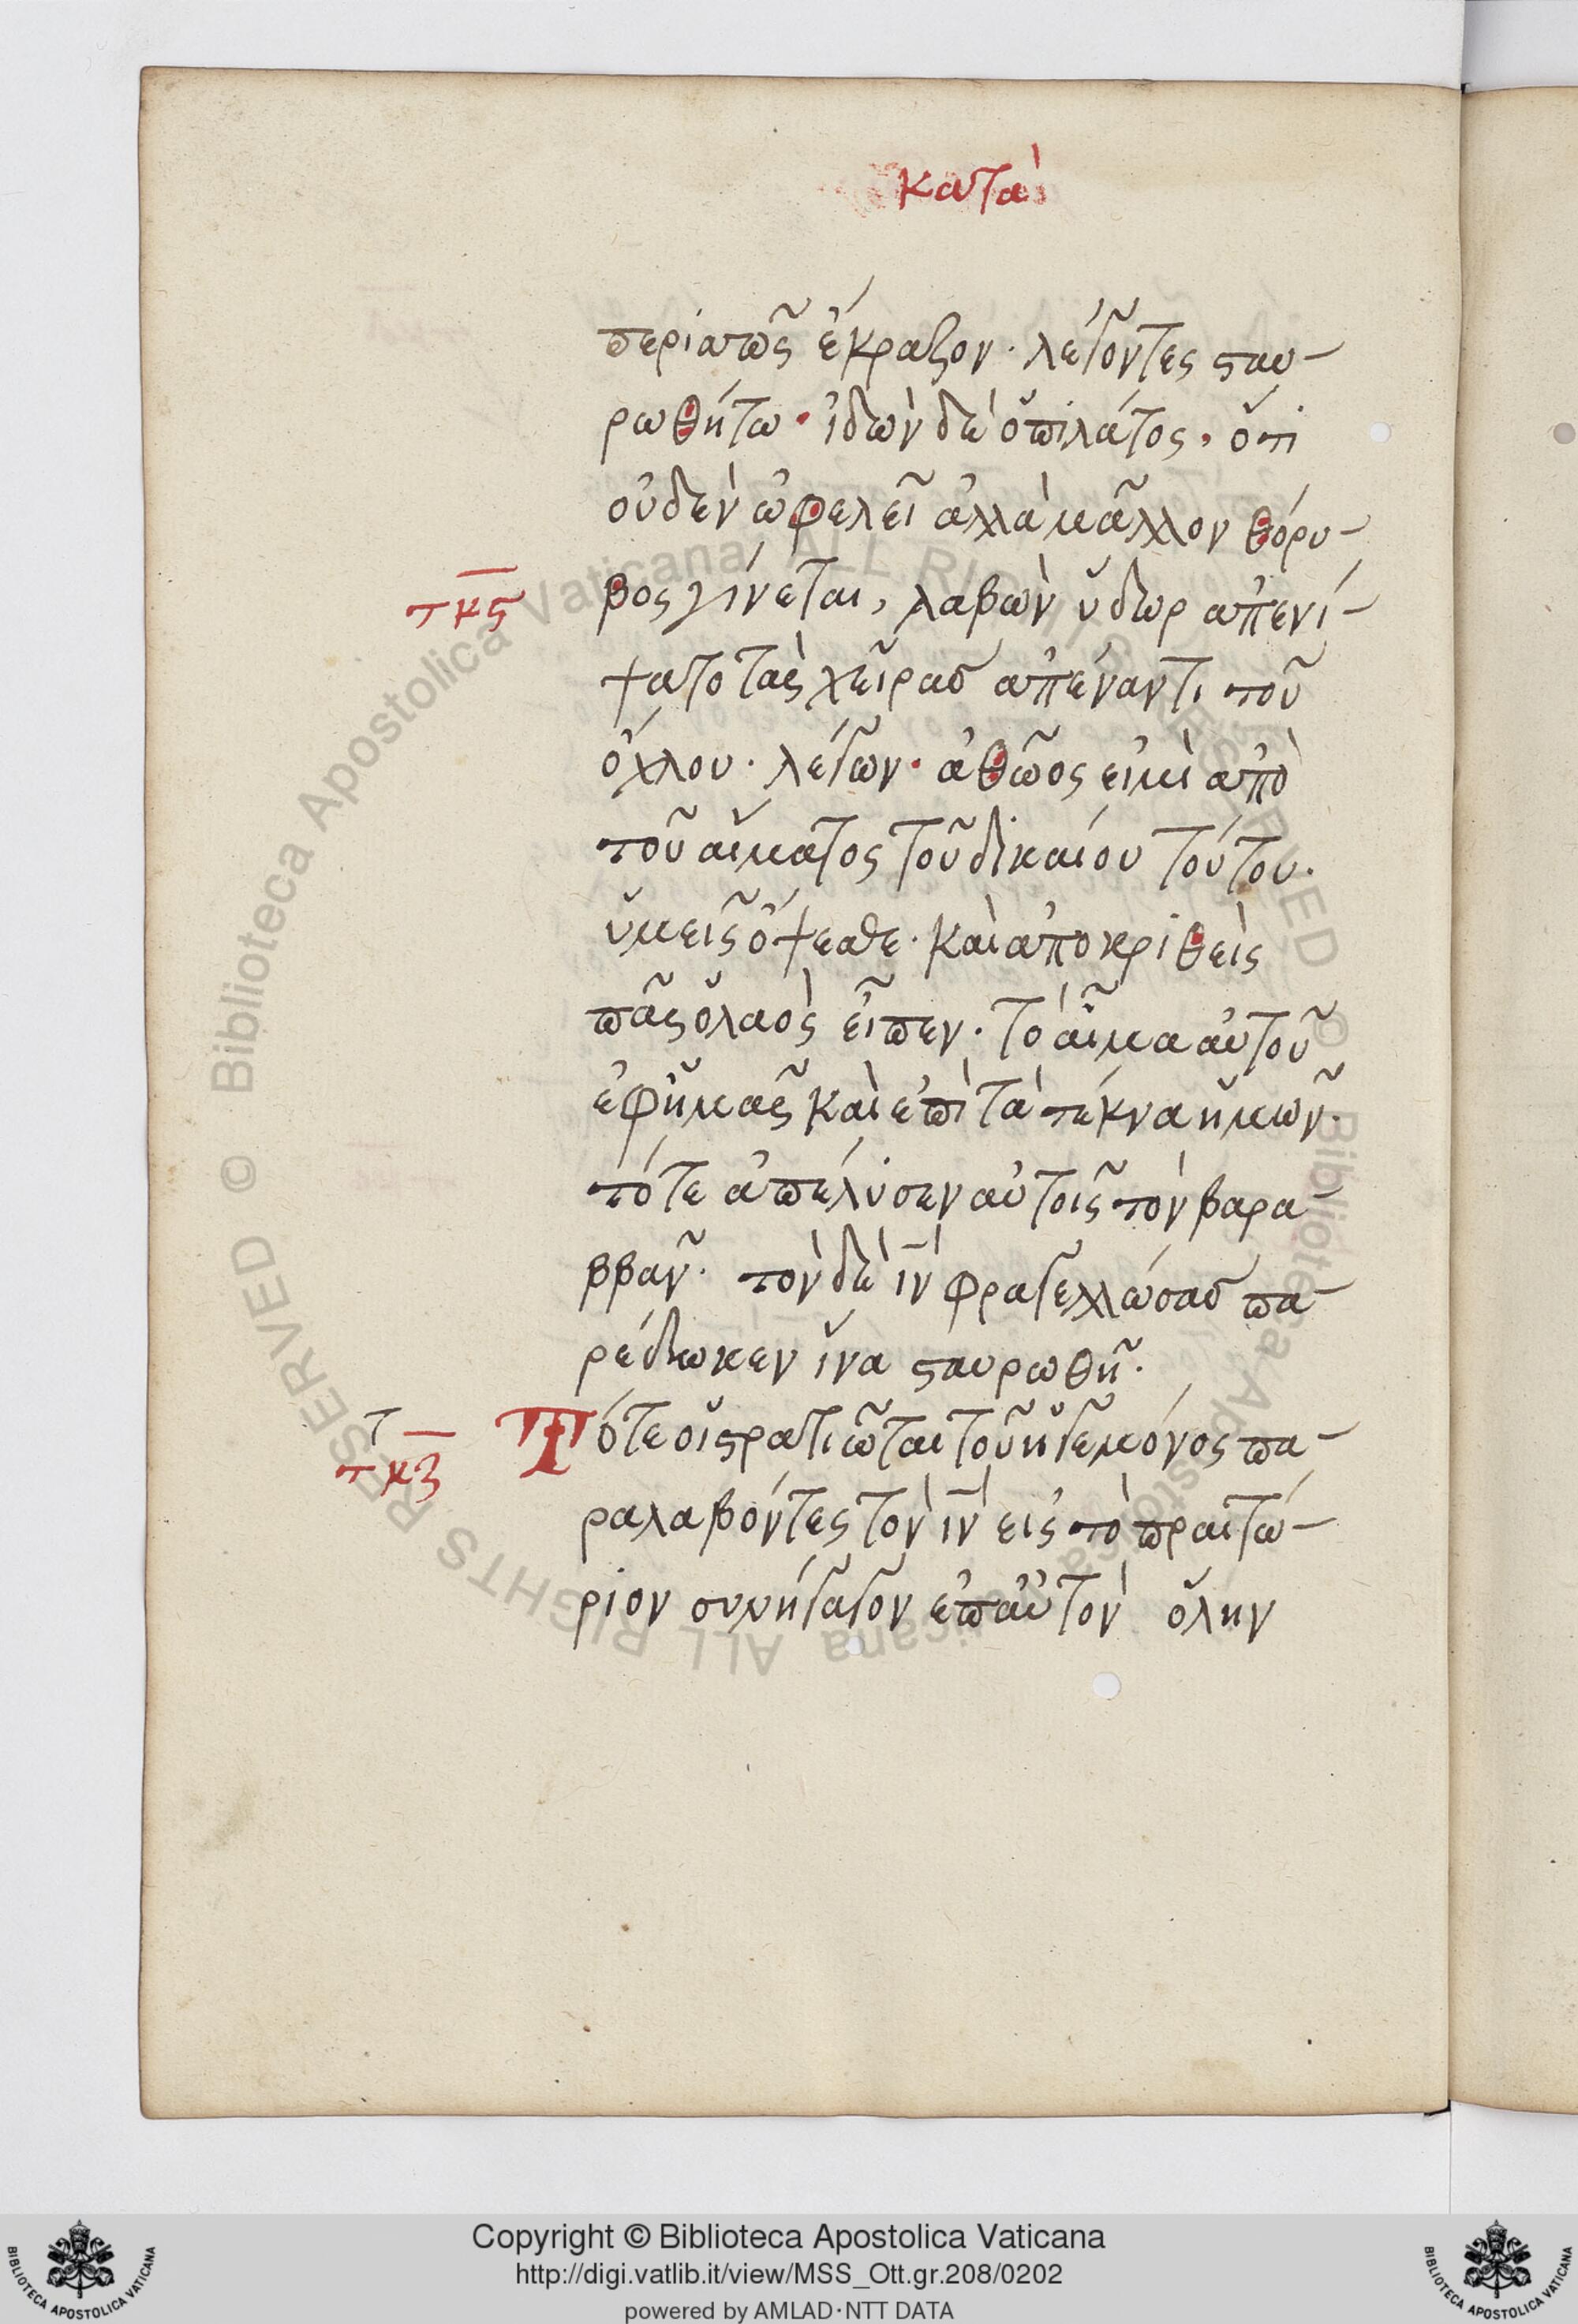 κατὰ
περιατῶς ἔκραζον· λέγοντες σταυ-
ρωθήτω· ἰδὼν δὲ ὁ πιλάτος, ὅτι
οὐδὲν ὠφελεῖ ἀλλὰ μᾶλλον θόρυ-
τκϛ βος γίνεται, λαβὼν ὕδωρ ἀπενί-
ψατο τὰς χεῖρας ἀπέναντι τοῦ
ὄχλου· λέγων· ἀθῶος εἰμὶ ἀπὸ
τοῦ αἵματος τοῦ δικαίου τούτου·
ὑμεῖς ὄψεσθε· καὶ ἀποκριθεὶς
πᾶς ὁ λαὸς εἶπεν· τὸ αἷμα αὐτοῦ
ἐφ ἡμᾶς καὶ ἐπὶ τὰ τέκνα ἡμῶν·
τότε ἀπέλυσεν αὐτοῖς τὸν βαρα-
ββᾶν· τὸν δὲ ιν φραγελλώσας πα-
ρέδωκεν ἵνα σταυρωθῆ·
τκζ Τότε οἱ στρατιῶται τοῦ ἡγεμόνος πα-
ραλαβόντες τὸν ιν εἰς τὸ πραιτώ-
ριον συνήγαγον ἐπ αὐτὸν ὅλην
Copyright © Biblioteca Apostolica Vaticana
http://digi.vatlib.it/view/MSS_Ott.gr.208/0202
powered by AMLAD·NTT DATA